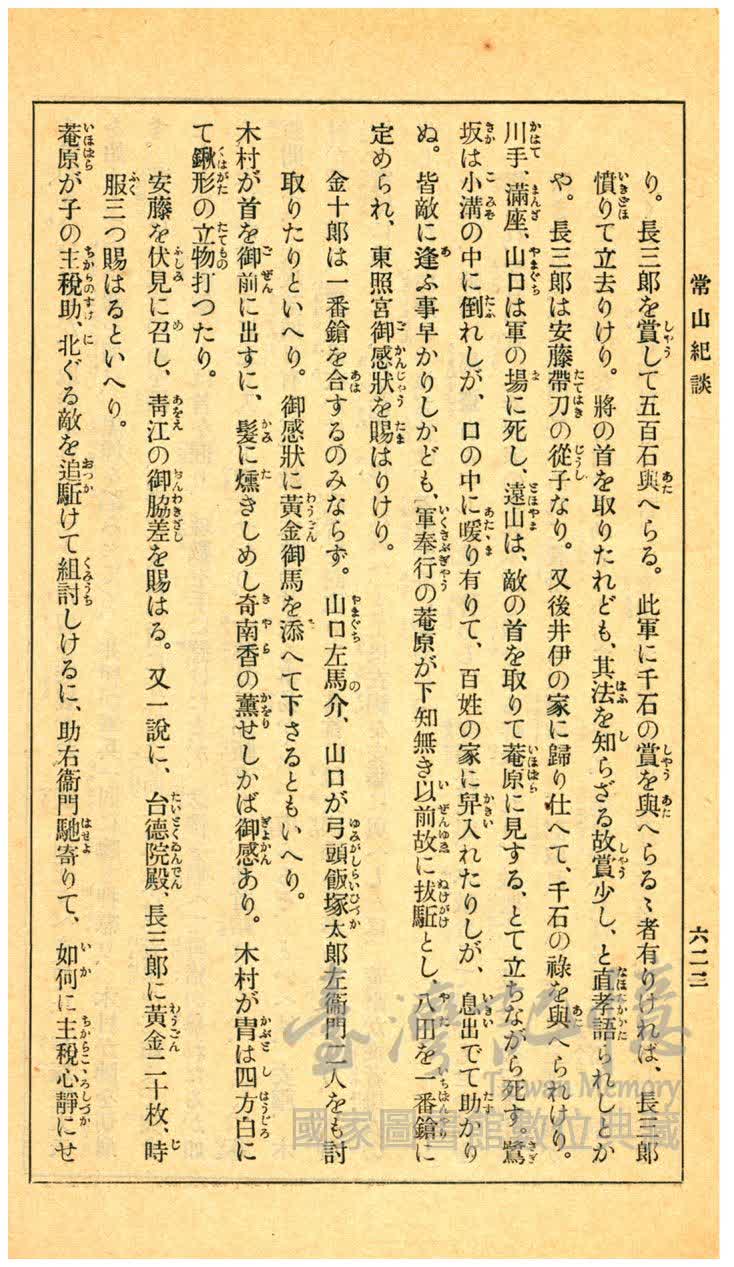 常山紀談
六二三
り。長三郎を賞して五百石與へらる。此軍に千石の賞を與へらるゝ者有りければ、長三郎
憤りて立去りけり。將の首を取りたれども、其法を知らざる故賞少し、と直孝語られしとか
や。長三郎は安藤帶刀の從子なり。又後井伊の家に歸り仕へて、千石の祿を與へられけり。
川手、滿座、山口は軍の場に死し、遠山は、敵の首を取りて菴原に見する、とて立ちながら死す。鷺
坂は小溝の中に倒れしが、口の中に暖り有りて、百姓の家に舁入れたりしが、息出でて助かり
ぬ。皆敵に逢ふ事早かりしかども、軍奉行の菴原が下知無き以前故に拔駈とし、八田を一番鎗に
定められ、東照宮御感狀を賜はりけり。
金十郎は一番鎗を合するのみならず。山口左馬介、山口が弓頭飯塚太郎左衞門二人をも討
取りたりといへり。御感狀に黃金御馬を添へて下さるともいへり。
木村が首を御前に出すに、髮に燻きしめし奇南香の薰せしかば御感あり。木村が冑は四方白に
て鍬形の立物打つたり。
安藤を伏見に召し、靑江の御脇差を賜はる。又一說に、台德院殿、長三郎に黃金二十枚、時
服三つ賜はるといへり。
菴原が子の主稅助、北ぐる敵を追駈けて組討しけるに、助右衞門馳寄りて、如何に主稅心靜にせ
臺灣記憶
Taiwan Memory
國家圖書館數位典藏